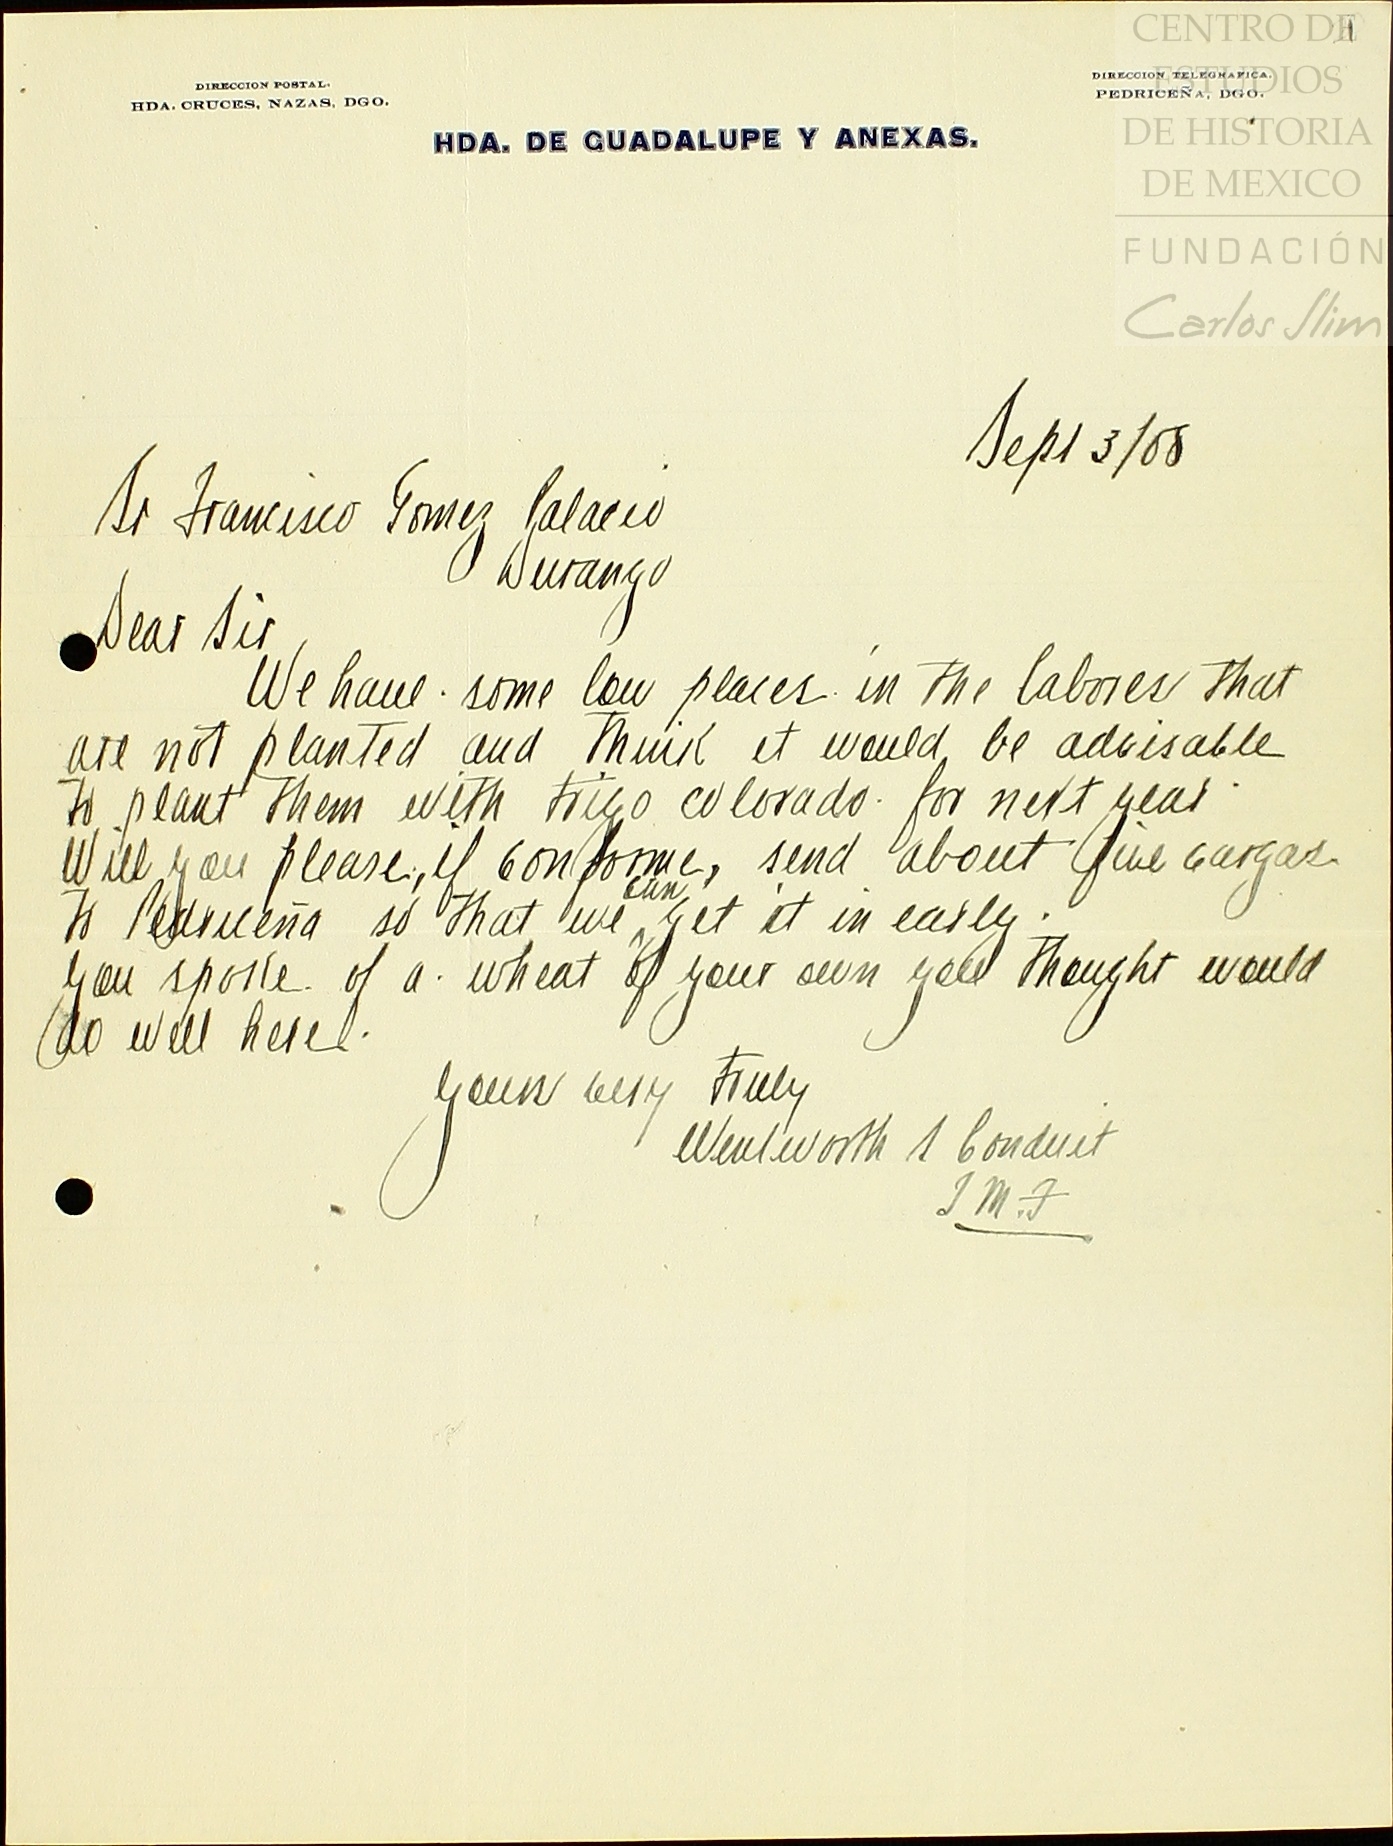 CENTRO DE
ESTUDIOS
DE HISTORIA
DE MEXICO
FUNDACIÓN
Carlos Slim
DIRECCION POSTAL.
HDA. CRUCES, NAZAS, DGO.
DIRECCION TELEGRAFICA.
PEDRICEÑA, DGO.
HDA. DE GUADALUPE Y ANEXAS.
Sept 3/08
Sr Francisco Gomez Palacio
Durango
Dear Sir
We have some low places in the labores that
are not planted and think it would be advisable
to plant them with trigo colorado for next year
Will you please, if conforme, send about five cargas
to Pedriceña so that we can get it in early.
you spoke of a wheat of your own you thought would
do well here.
yours very truly
Wentworth & Conduit
M.F